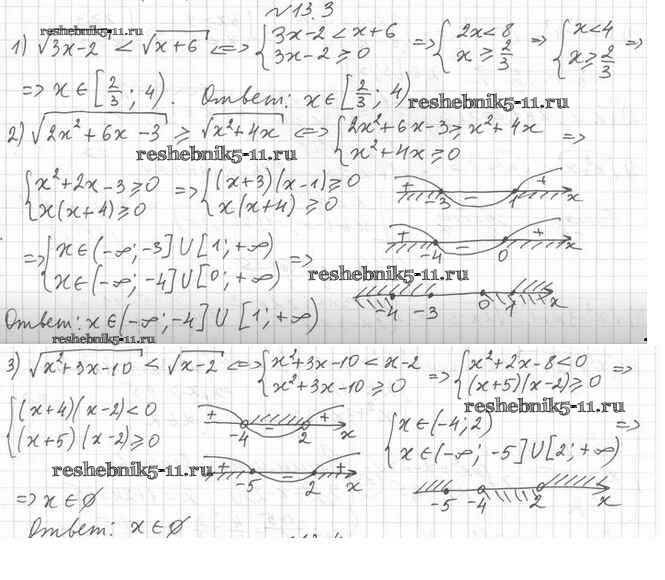 №13.3
reshebnik5-11.ru
1) √(3x-2) < √(x+6) <=> { 3x-2 < x+6 ; 3x-2 ≥ 0 => { 2x < 8 ; x ≥ 2/3 => { x < 4 ; x ≥ 2/3 =>
=> x ∈ [2/3; 4). Ответ: x ∈ [2/3; 4)
reshebnik5-11.ru
2) √(2x²+6x-3) ≥ √(x²+4x) <=> { 2x²+6x-3 ≥ x²+4x ; x²+4x ≥ 0 =>
reshebnik5-11.ru
{ x²+2x-3 ≥ 0 ; x(x+4) ≥ 0 => { (x+3)(x-1) ≥ 0 ; x(x+4) ≥ 0
+ -3 - 1 + x
+ -4 - 0 + x
=> { x ∈ (-∞; -3] U [1; +∞) ; x ∈ (-∞; -4] U [0; +∞) =>
reshebnik5-11.ru
-4 -3 0 1 x
Ответ: x ∈ (-∞; -4] U [1; +∞)
reshebnik5-11.ru
3) √(x²+3x-10) < √(x-2) <=> { x²+3x-10 < x-2 ; x²+3x-10 ≥ 0 => { x²+2x-8 < 0 ; (x+5)(x-2) ≥ 0 =>
reshebnik5-11.ru
{ (x+4)(x-2) < 0 ; (x+5)(x-2) ≥ 0
+ -4 - 2 + x
+ -5 - 2 + x
{ x ∈ (-4; 2) ; x ∈ (-∞; -5] U [2; +∞) =>
reshebnik5-11.ru
-5 -4 2 x
=> x ∈ ∅
Ответ: x ∈ ∅